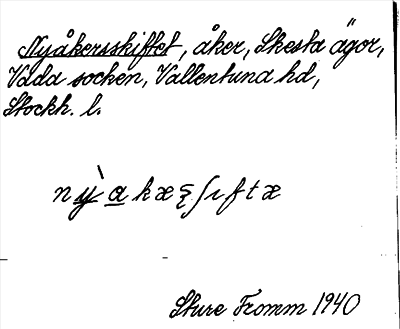 Nyåkersskiftet, åker, Skesta ägor,
Vada socken, Vallentuna hd,
Stockh. l.
Sture Fromm 1940